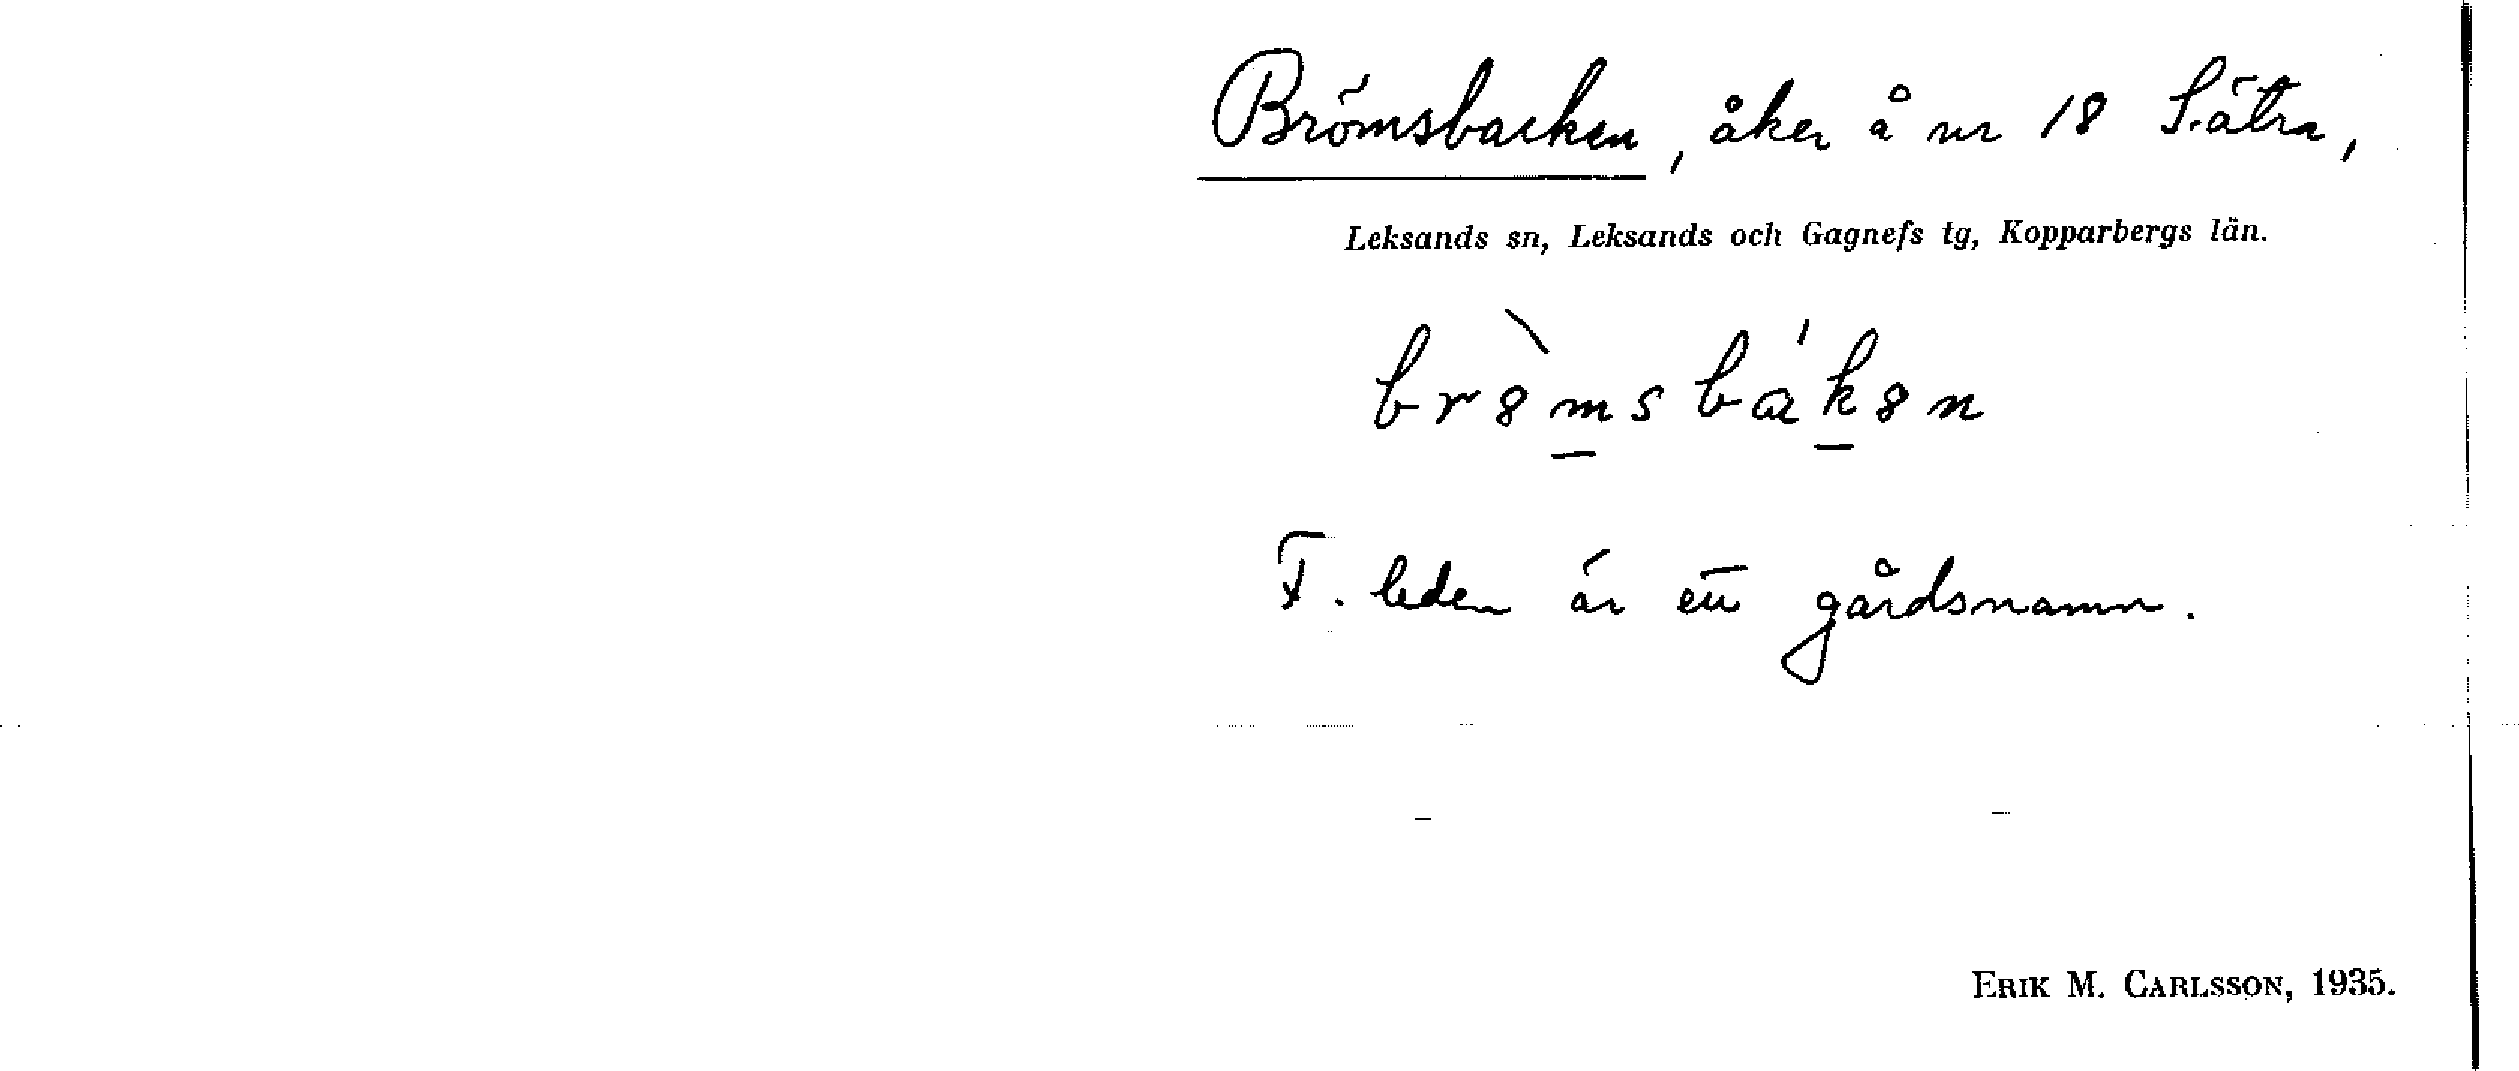 Brömsbacken, åker å nr 18 Sätra,
Leksands sn, Leksands och Gagnefs tg, Kopparbergs län.
br8̀msbák8n
F. leden är ett gårdsnamn.
ERIK M. CARLSSON, 1935.